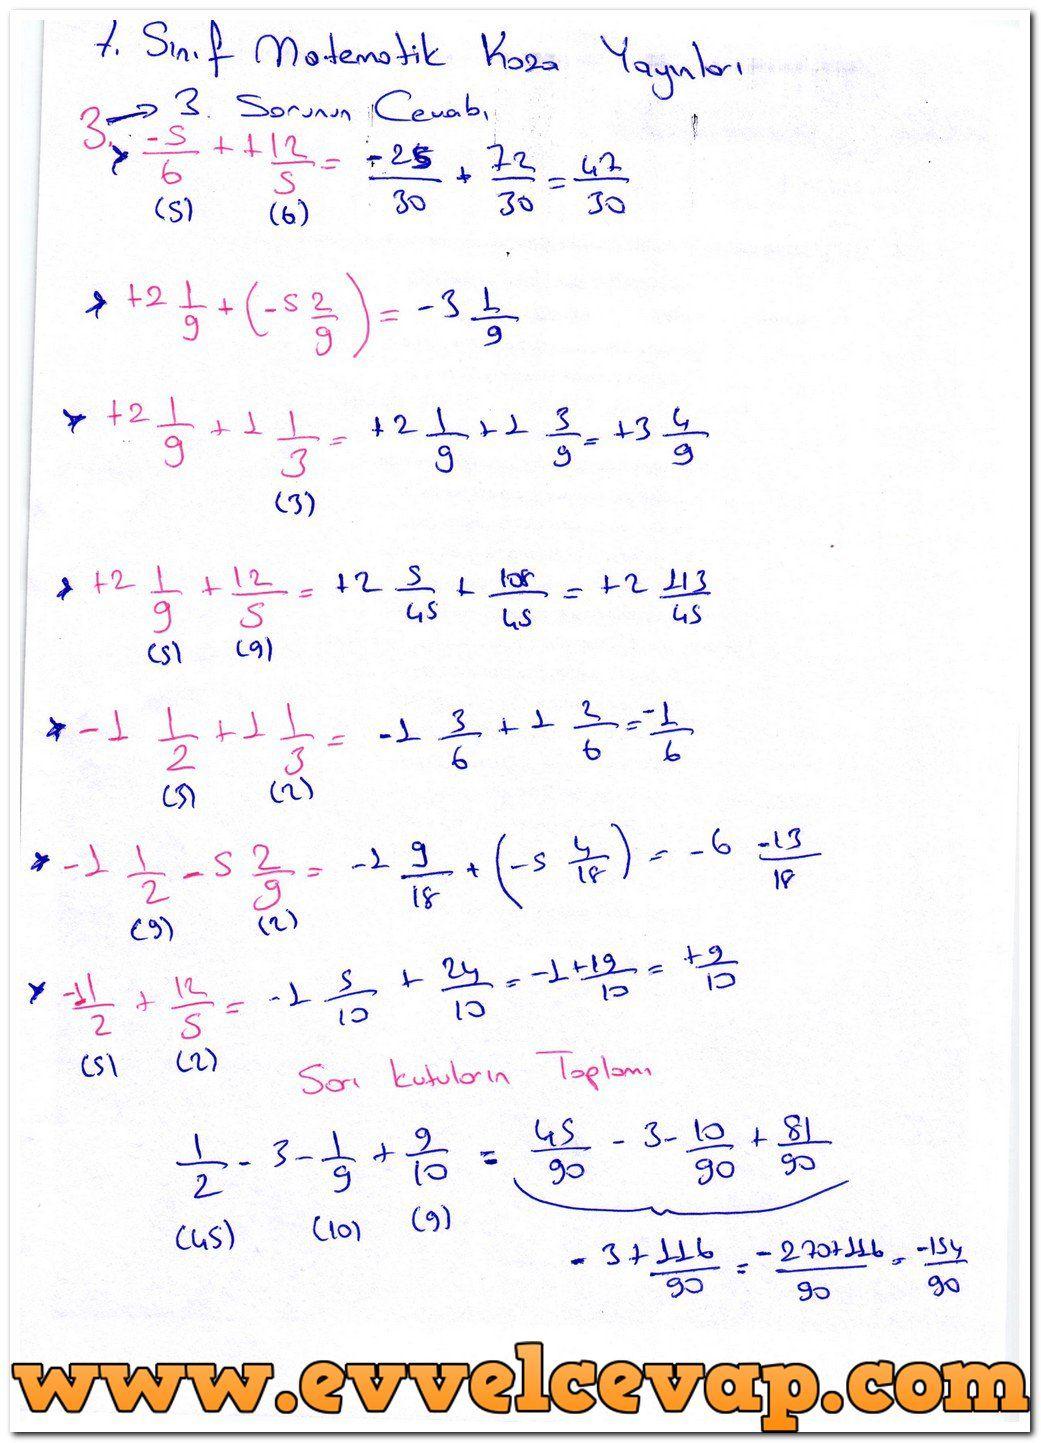 7. Sınıf Matematik Koza Yayınları
3. → 3. Sorunun Cevabı
-5/6 + +12/5 = -25/30 + 72/30 = 47/30
(5) (6)
+2 1/9 + (-5 2/9) = -3 1/9
+2 1/9 + 1 1/3 = +2 1/9 + 1 3/9 = +3 4/9
(3)
+2 1/9 + 12/5 = +2 5/45 + 108/45 = +2 113/45
(5) (9)
-1 1/2 + 1 1/3 = -1 3/6 + 1 2/6 = -1/6
(3) (2)
-1 1/2 - 5 2/9 = -1 9/18 + (-5 4/18) = -6 -13/18
(9) (2)
-11/2 + 12/5 = -1 5/10 + 24/10 = -1 + 19/10 = +9/10
(5) (2)
Sarı kutuların Toplamı
1/2 - 3 - 1/9 + 9/10 = 45/90 - 3 - 10/90 + 81/90
(45) (10) (9)
- 3 + 116/90 = -270+116/90 = -154/90
www.evvelcevap.com